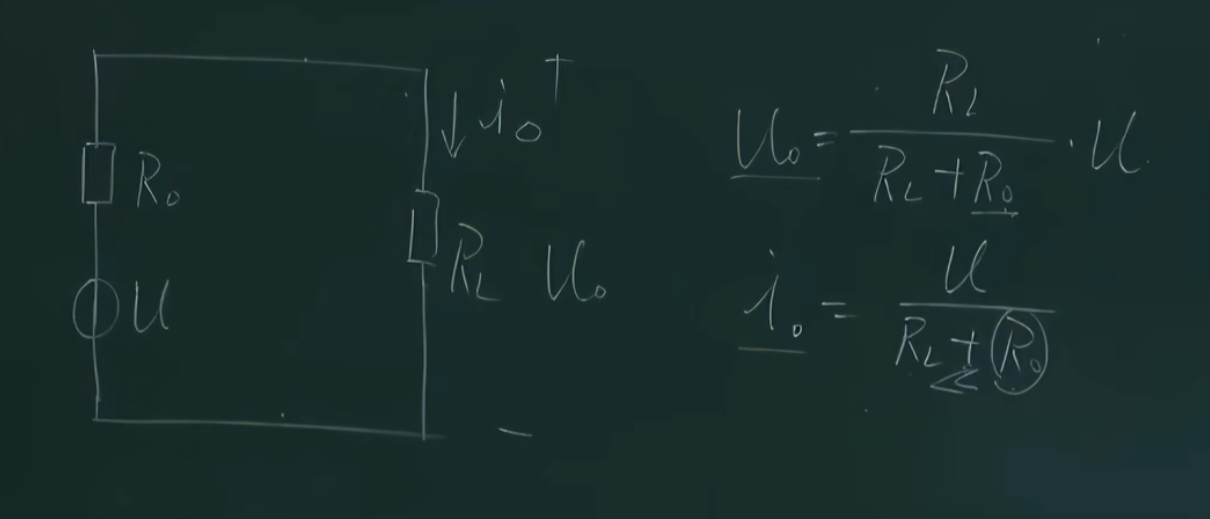 R₀
U
i₀
+
R_L U₀
−
U₀ = R_L / (R_L + R₀) · U
i₀ = U / (R_L + R₀)
≪